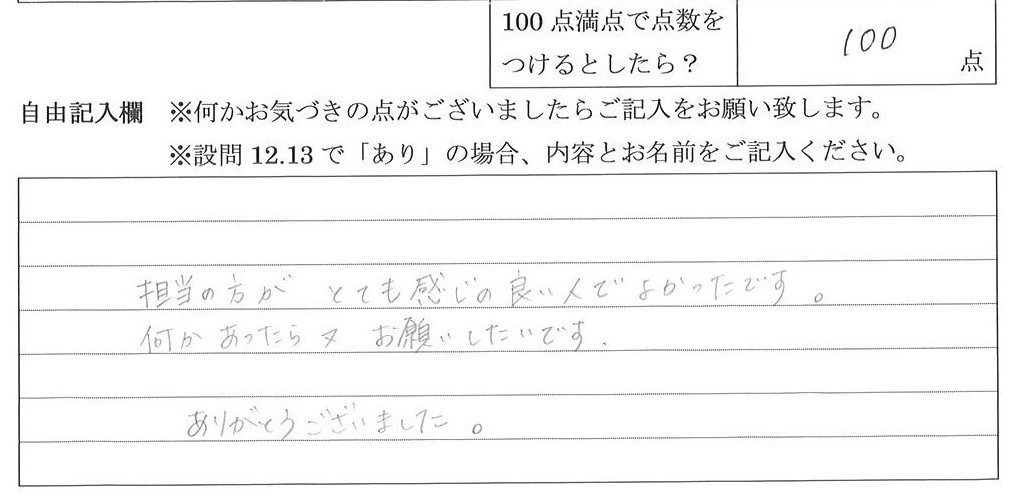 100点満点で点数を
つけるとしたら？
100
点
自由記入欄 ※何かお気づきの点がございましたらご記入をお願い致します。
※設問12.13で「あり」の場合、内容とお名前をご記入ください。
担当の方が とても感じの良い人でよかったです。
何かあったら又 お願いしたいです.
ありがとうございました。